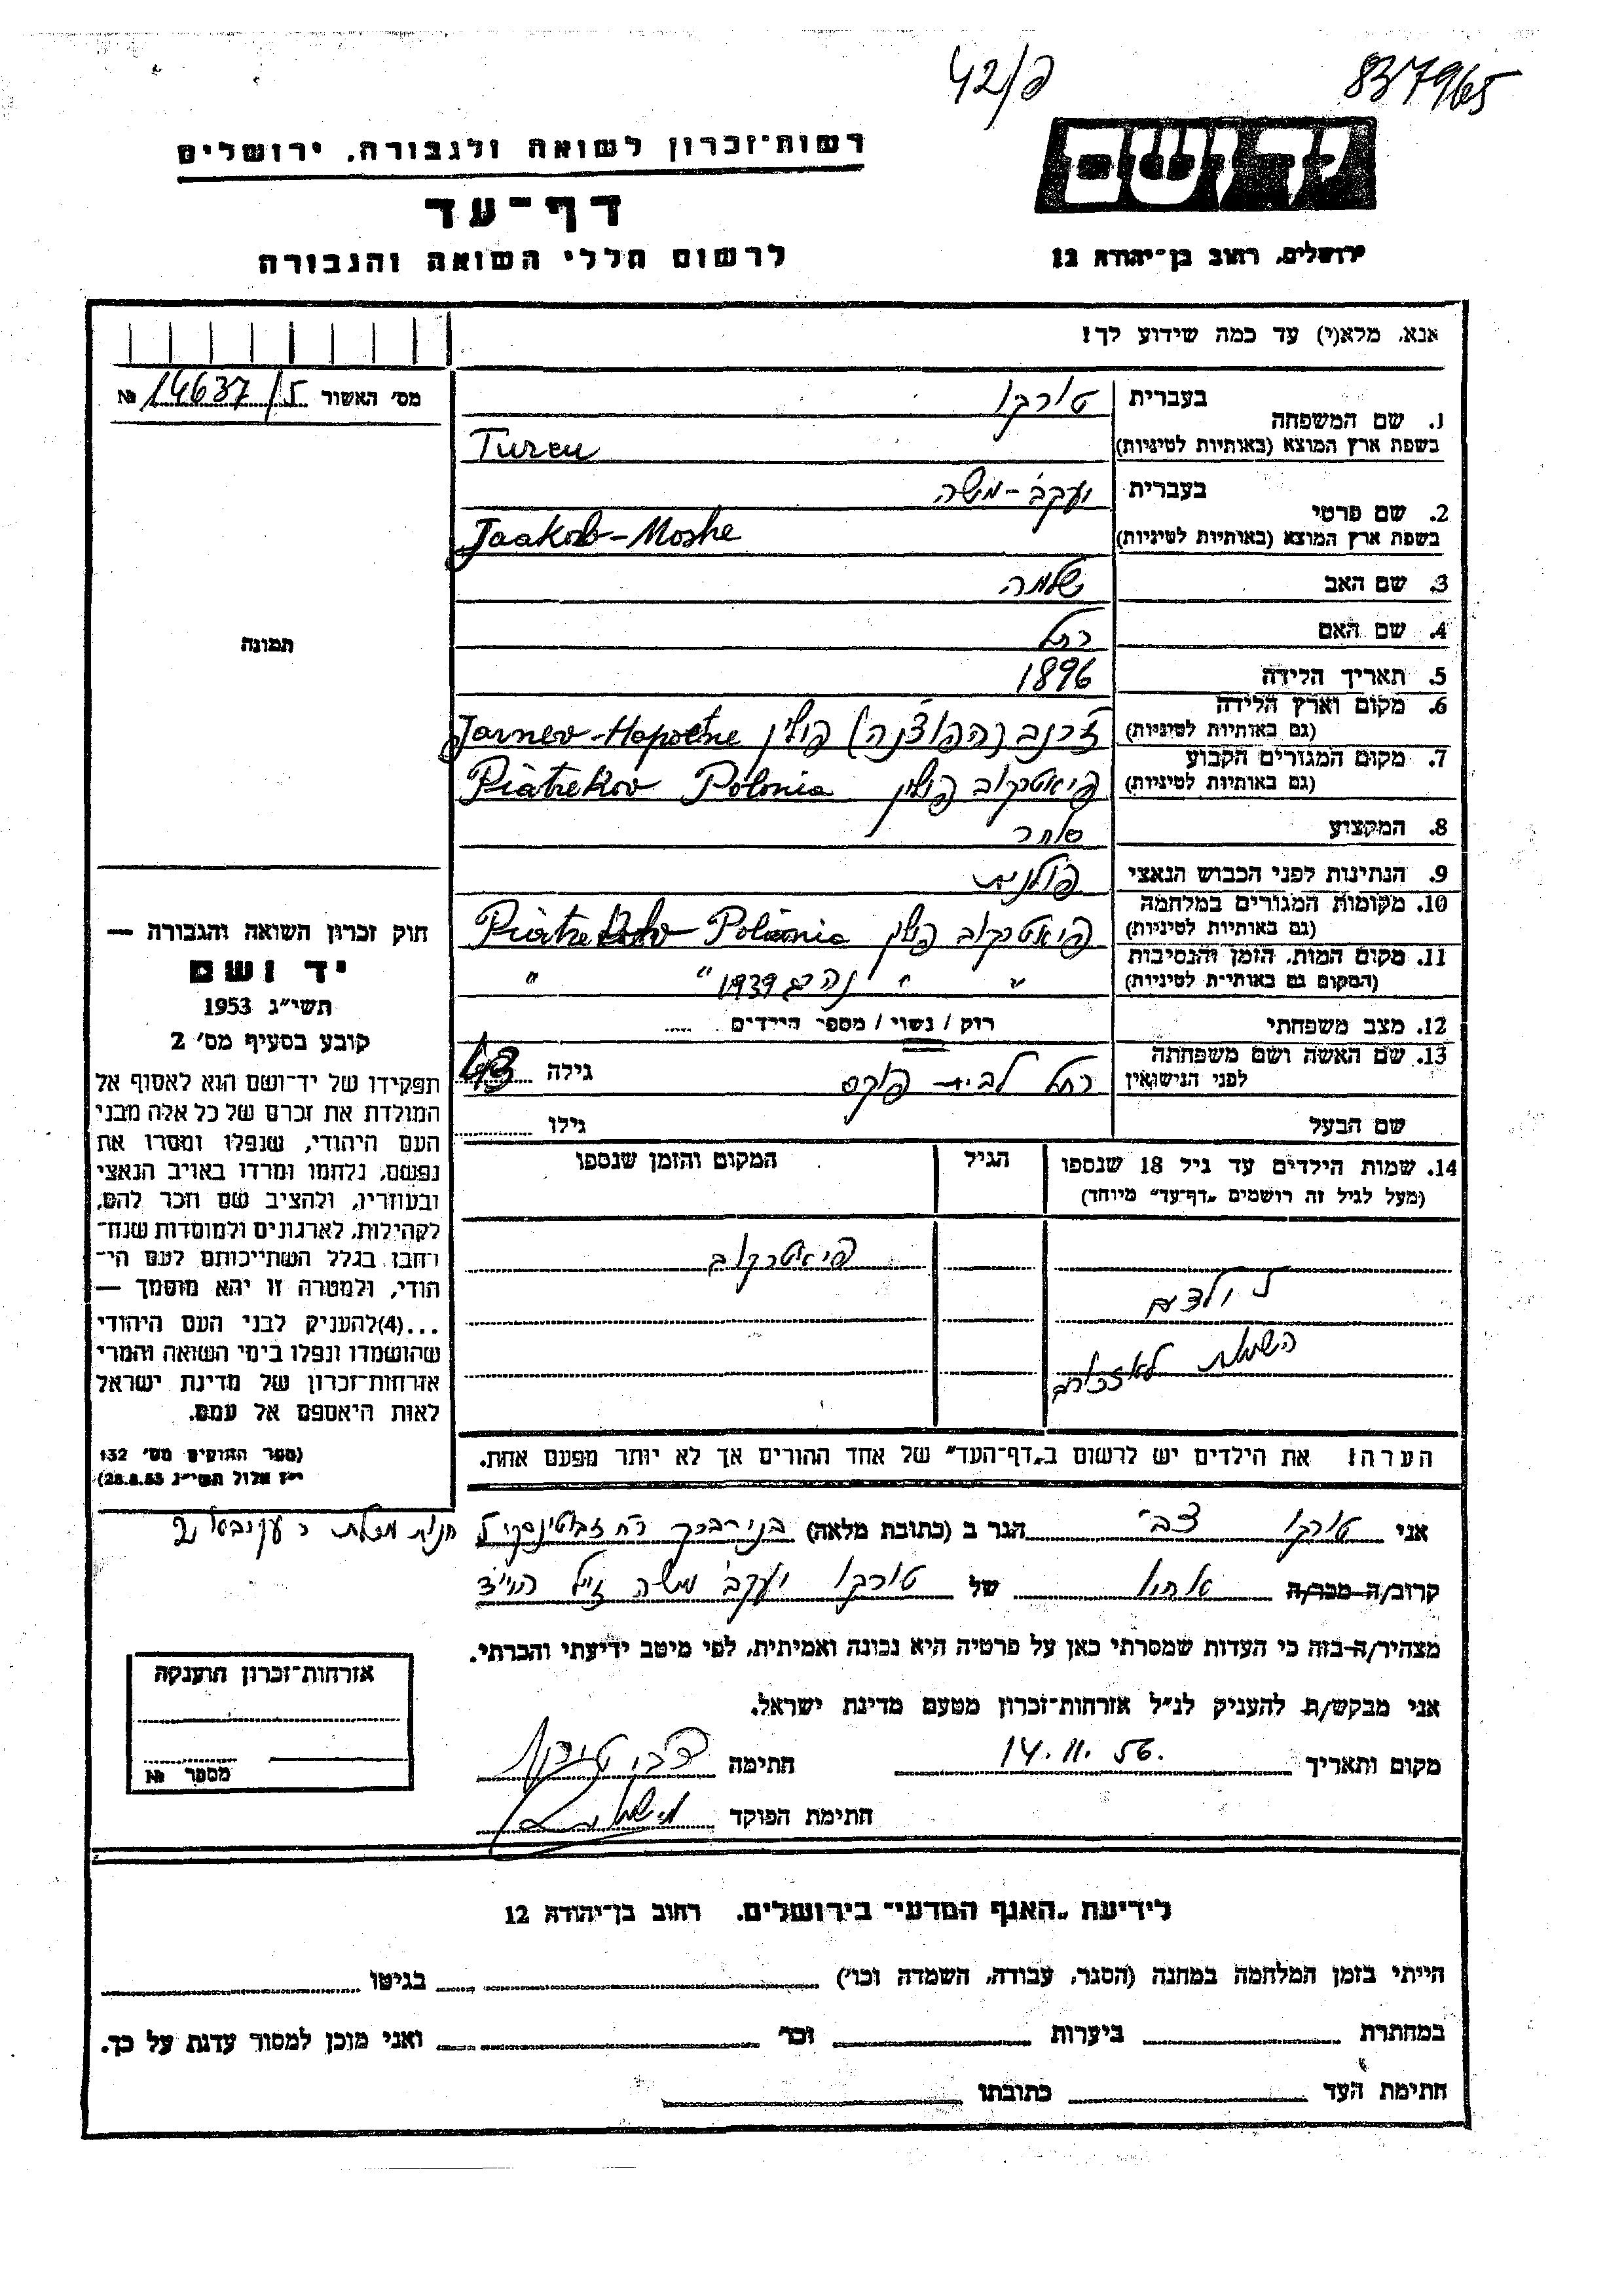 42/פ
837965
רשות־זכרון לשואה ולגבורה, ירושלים
יד ושם
דף־עד
לרשום חללי השואה והגבורה
ירושלים, רחוב בן־יהודה 12
אנא, מלא(י) עד כמה שידוע לך!
מס׳ האשור 14637/5 №
1. שם המשפחה
בעברית טורקו
בשפת ארץ המוצא (באותיות לטיניות) Turcu
2. שם פרטי
בעברית יעקב־משה
בשפת ארץ המוצא (באותיות לטיניות) Jaakob-Moshe
3. שם האב שלמה
4. שם האם רחל
5. תאריך הלידה 1896
6. מקום וארץ הלידה
(גם באותיות לטיניות) פולין
7. מקום המגורים הקבוע
(גם באותיות לטיניות) פיאטרקוב פולין Piatrekov Polonia
8. המקצוע סוחר
9. הנתינות לפני הכבוש הנאצי פולנית
10. מקומות המגורים במלחמה
(גם באותיות לטיניות) פיאטרקוב פולין Polonia
11. מקום המות, הזמן והנסיבות
(המקום גם באותיות לטיניות) " " 1939 " "
12. מצב משפחתי רוק / נשוי / מספר הילדים
13. שם האשה ושם משפחתה
לפני הנישואין רחל לבית פוקס גילה 43
שם הבעל גילו
14. שמות הילדים עד גיל 18 שנספו הגיל המקום והזמן שנספו
(מעל לגיל זה רושמים „דף־עד״ מיוחד)
פיאטרקוב
ילדים
השמות לא
הערה! את הילדים יש לרשום ב„דף־העד״ של אחד ההורים אך לא יותר מפעם אחת.
תמונה
חוק זכרון השואה והגבורה —
יד ושם
תשי״ג 1953
קובע בסעיף מס׳ 2
תפקידו של יד־ושם הוא לאסוף אל
המולדת את זכרם של כל אלה מבני
העם היהודי, שנפלו ומסרו את
נפשם, נלחמו ומרדו באויב הנאצי
ובעוזריו, ולהציב שם וזכר להם,
לקהילות, לארגונים ולמוסדות שנח־
רחבו בגלל השתייכותם לעם הי־
הודי, ולמטרה זו יהא מוסמך —
...(4)להעניק לבני העם היהודי
שהושמדו ונפלו בימי השואה והמרי
אזרחות־זכרון של מדינת ישראל
לאות היאספם אל עמם.
(ספר החוקים מס׳ 132
י״ז אלול תשי״ג 28.8.53)
אני טורקו צבי הגר ב (כתובת מלאה) בני ברק רח ז׳בוטינסקי חנות מכולת
קרוב/ה מכר/ה אחיו של טורקו יעקב משה ז״ל הי״ד
מצהיר/ה בזה כי העדות שמסרתי כאן על פרטיה היא נכונה ואמיתית, לפי מיטב ידיעתי והכרתי.
אני מבקש/ת להעניק לנ״ל אזרחות־זכרון מטעם מדינת ישראל.
מקום ותאריך 14.11.56. חתימה צבי טורקו
חתימת הפוקד
אזרחות־זכרון הוענקה
מספר №
לידיעת „האגף המדעי״ בירושלים, רחוב בן־יהודה 12
הייתי בזמן המלחמה במחנה (הסגר, עבודה, השמדה וכו׳) בגיטו
במחתרת ביערות וכו׳ ואני מוכן למסור עדות על כך.
חתימת העד כתובתו